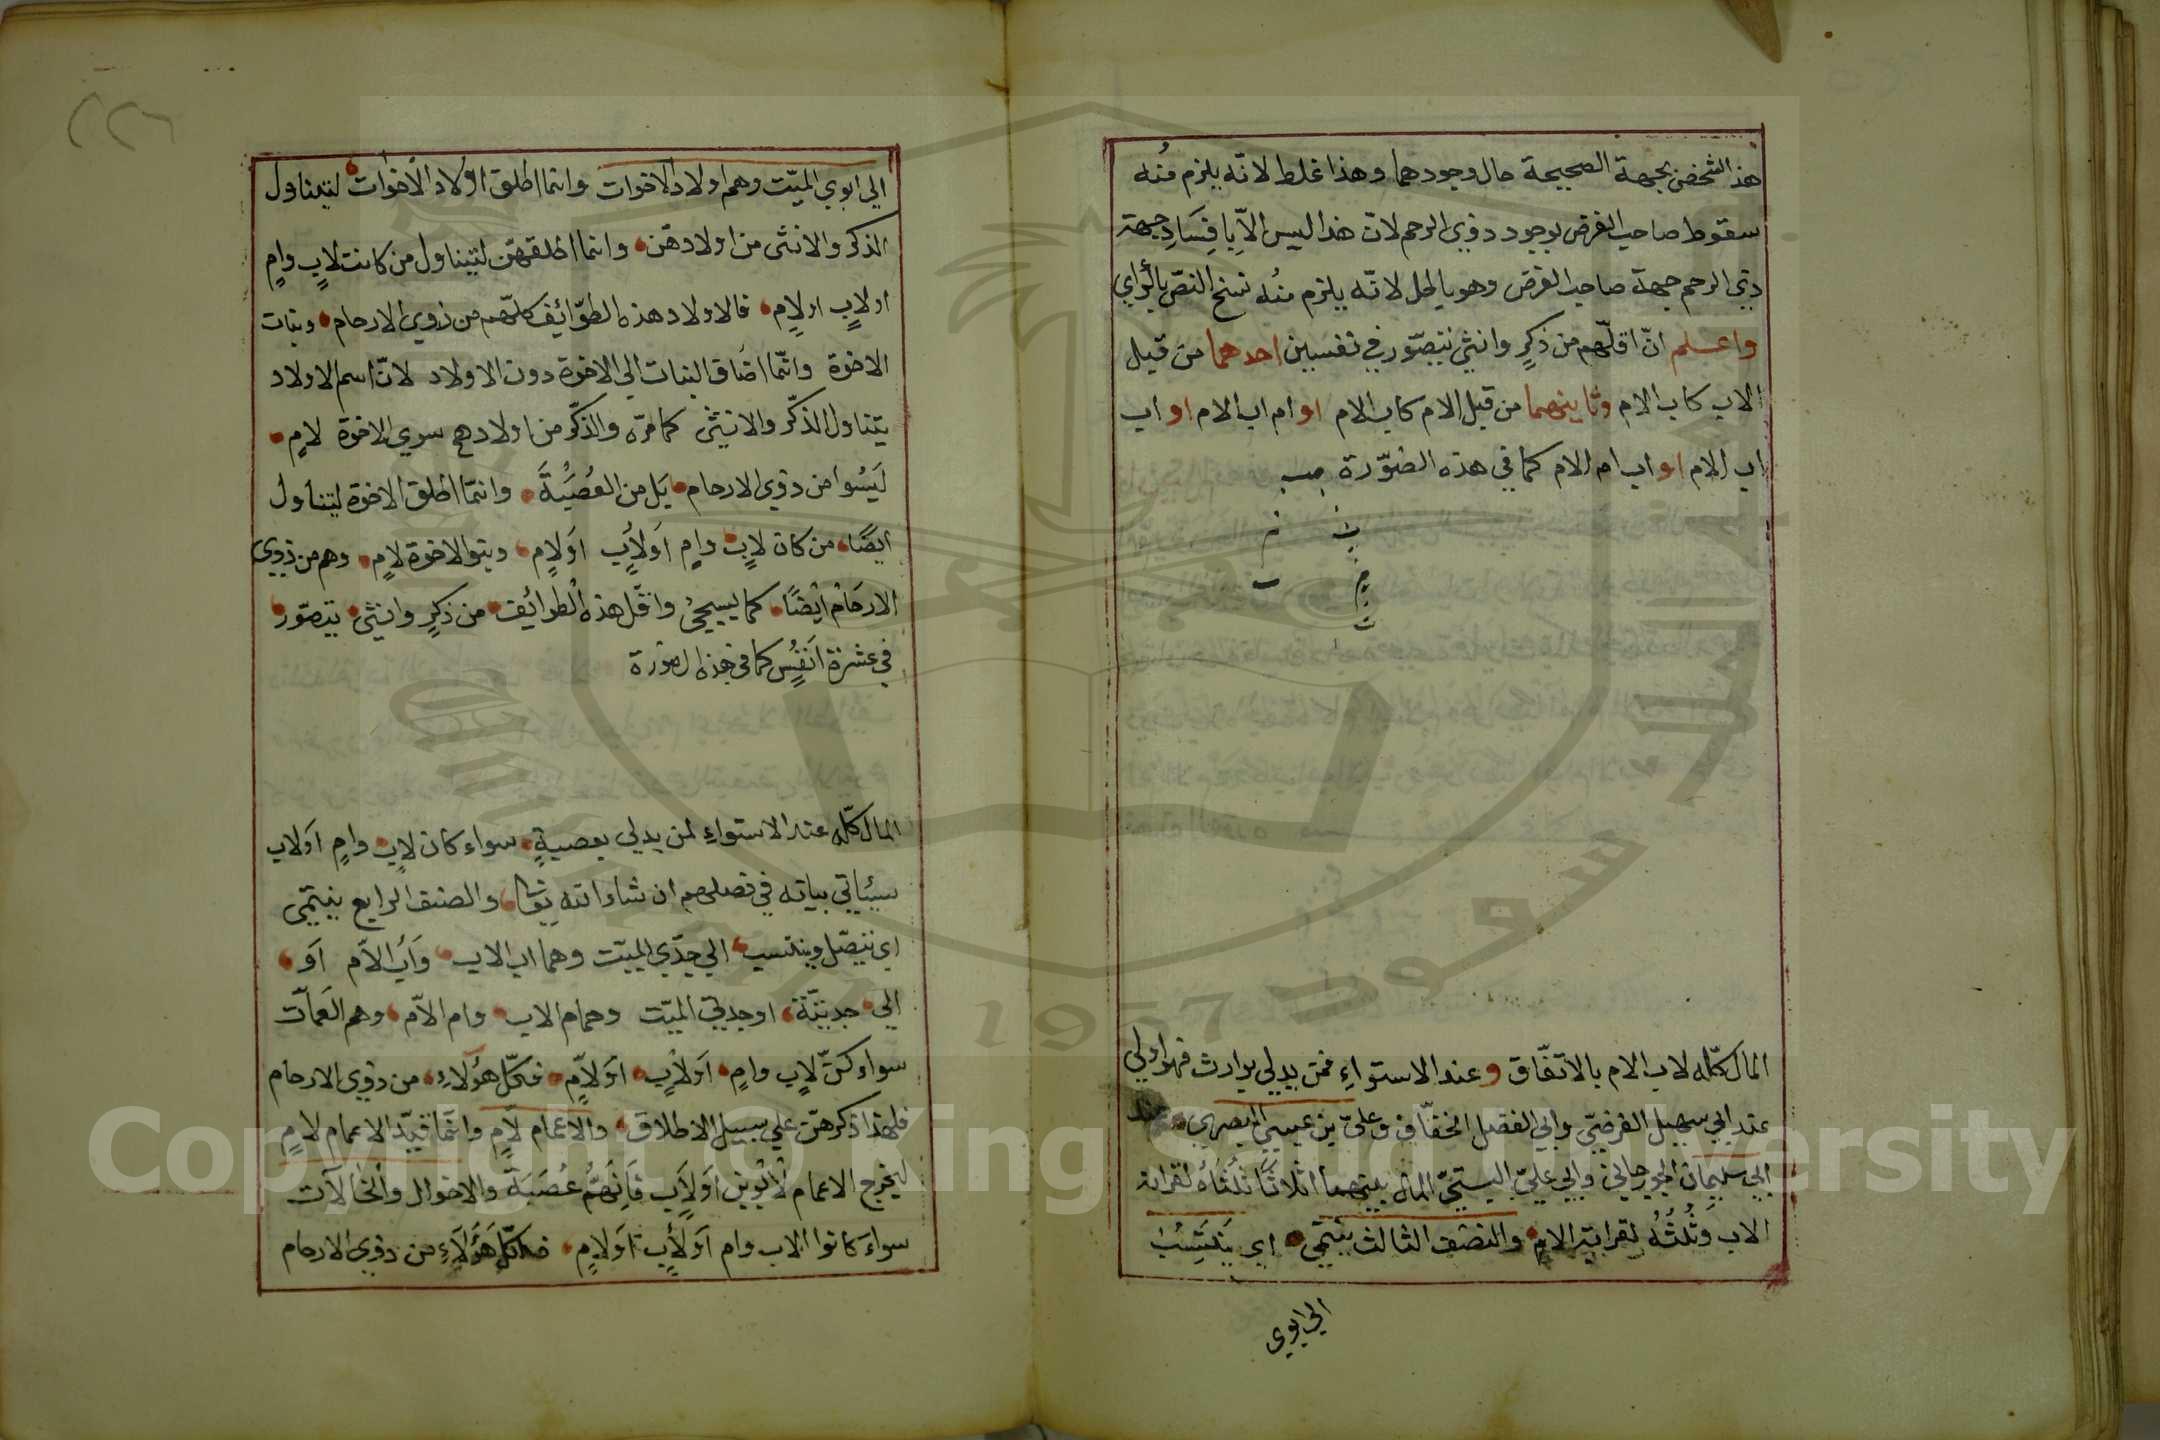 هذا الشخص بجهة الصحيحة حال وجودهما وهذا غلط لانّه يلزم مُنه
سقوط صاحب الفرض بوجود ذوي الرحم لانّ هذا ليس الاّ بافِسَادِ جهة
ذي الرحم جهة صاحب الفرض وهو باطل لانّه يلزم مُنه نسخ النصّ بالرّاي
واعلم انّ اقلّهم من ذكرٍ وانثى يتصوّر في نفسين احدهما من قبل
الاب كاب الام وثانيهما من قبل الام كاب الام او ام اب الام او اب
اب الام او اب ام الام كما في هذه الصّورة
المال كلّه لاب الام بالاتفّاق وعند الاستواءِ فمن يدلي بوارث فهو اولي
عند ابي سهيل الفرضيّ وابي الفضل الخفّاف وعليّ بن عيسي البصري وعند
ابي سليمان الجورجاني وابي عليّ البستيّ المال بينهما اثلاثًا ثُلُثَاهُ لقرابة
الاب وَثُلُثُهُ لقرابة الام والصّنف الثالث ينتمي اي يَنْتَسِبُ
الي ابوي
الي ابوي الميّت وهم اولاد الاخوات وانما اطلق اوُلاد الأخوات ليتناول
الذكر والانثى من اولادهّن وانما اطلقهّن لتيناول من كانت لابٍ وامٍ
اولابٍ اولامٍ فالاولاد هذه الطوّائف كلّهم من ذوي الارحام وبنات
الاخوة وانّما اضاق البنات الي الاخوة دون الاولاد لانّ اسم الاولاد
يتناول الذكّر والانيثى كما مرّ والذكّر من اولادهم سوي الاخوة لامٍ
لَيسُوا من ذوي الارحام بَل من العُصَبَةَ وانمّا اطلق الاخوة ليتناول
ايضًا من كان لابٍ وامٍ اَولأبٍ اَولامٍ وبنوا الاخوة لامٍ وهم من ذوي
الارحَام ايْضًا كما يسيجئ واقّل هذه الطوائف من ذكرٍ وانثى يتصوّر
في عشرة اَنفُسٍ كما في هذه الصورة
المال كلّه عند الاستواءِ لمن يدلي بعصبةٍ سواء كان لابٍ وامٍ اَولاب
سيأتي بيانه في فصلهم ان شاء الله تعالى والصنف الرابع ينتمى
اي يتّصل وينتسب الي جدّي الميّت وهما اب الاب وَاَب الاّم اَو
الي جديّته او جدتي الميّت وهما ام الاب وام الاّم وهم العَمات
سواء كنّ لابٍ وامٍ اَولابٍ اولاّمٍ فكّل هؤلاءِ من ذوي الارحام
فلهذا ذكرهنّ علي سبيل الاطلاق والاعمام لاّمٍ وانمّا قيّد الاعمام لامٍ
ليخرج الاعمام لاَبْوينِ اَولابٍ فَانِهّمُ عُصَبَةٌ والاخوال والخالآت
سواءَ كانوا الاب وام اَولأبٍ اَولامٍ فكّل هَؤلاَءِ من ذوي الارحام
Copyright © King Saud University
1957